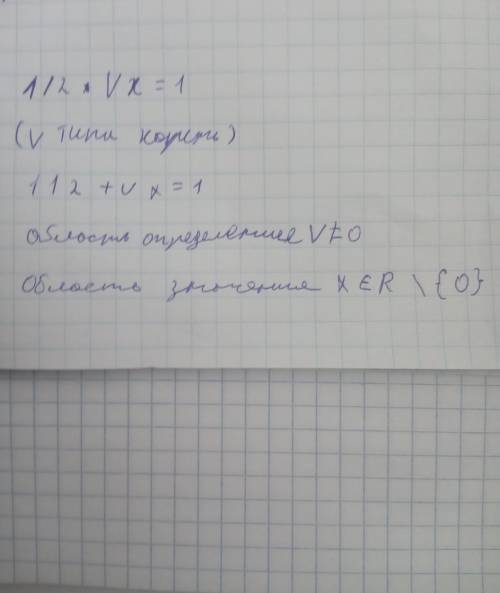 1/2 * V x = 1
(V типа корень)
1 1 2 + v x = 1
область определения V ≠ 0
область значения x ∈ R \ {0}